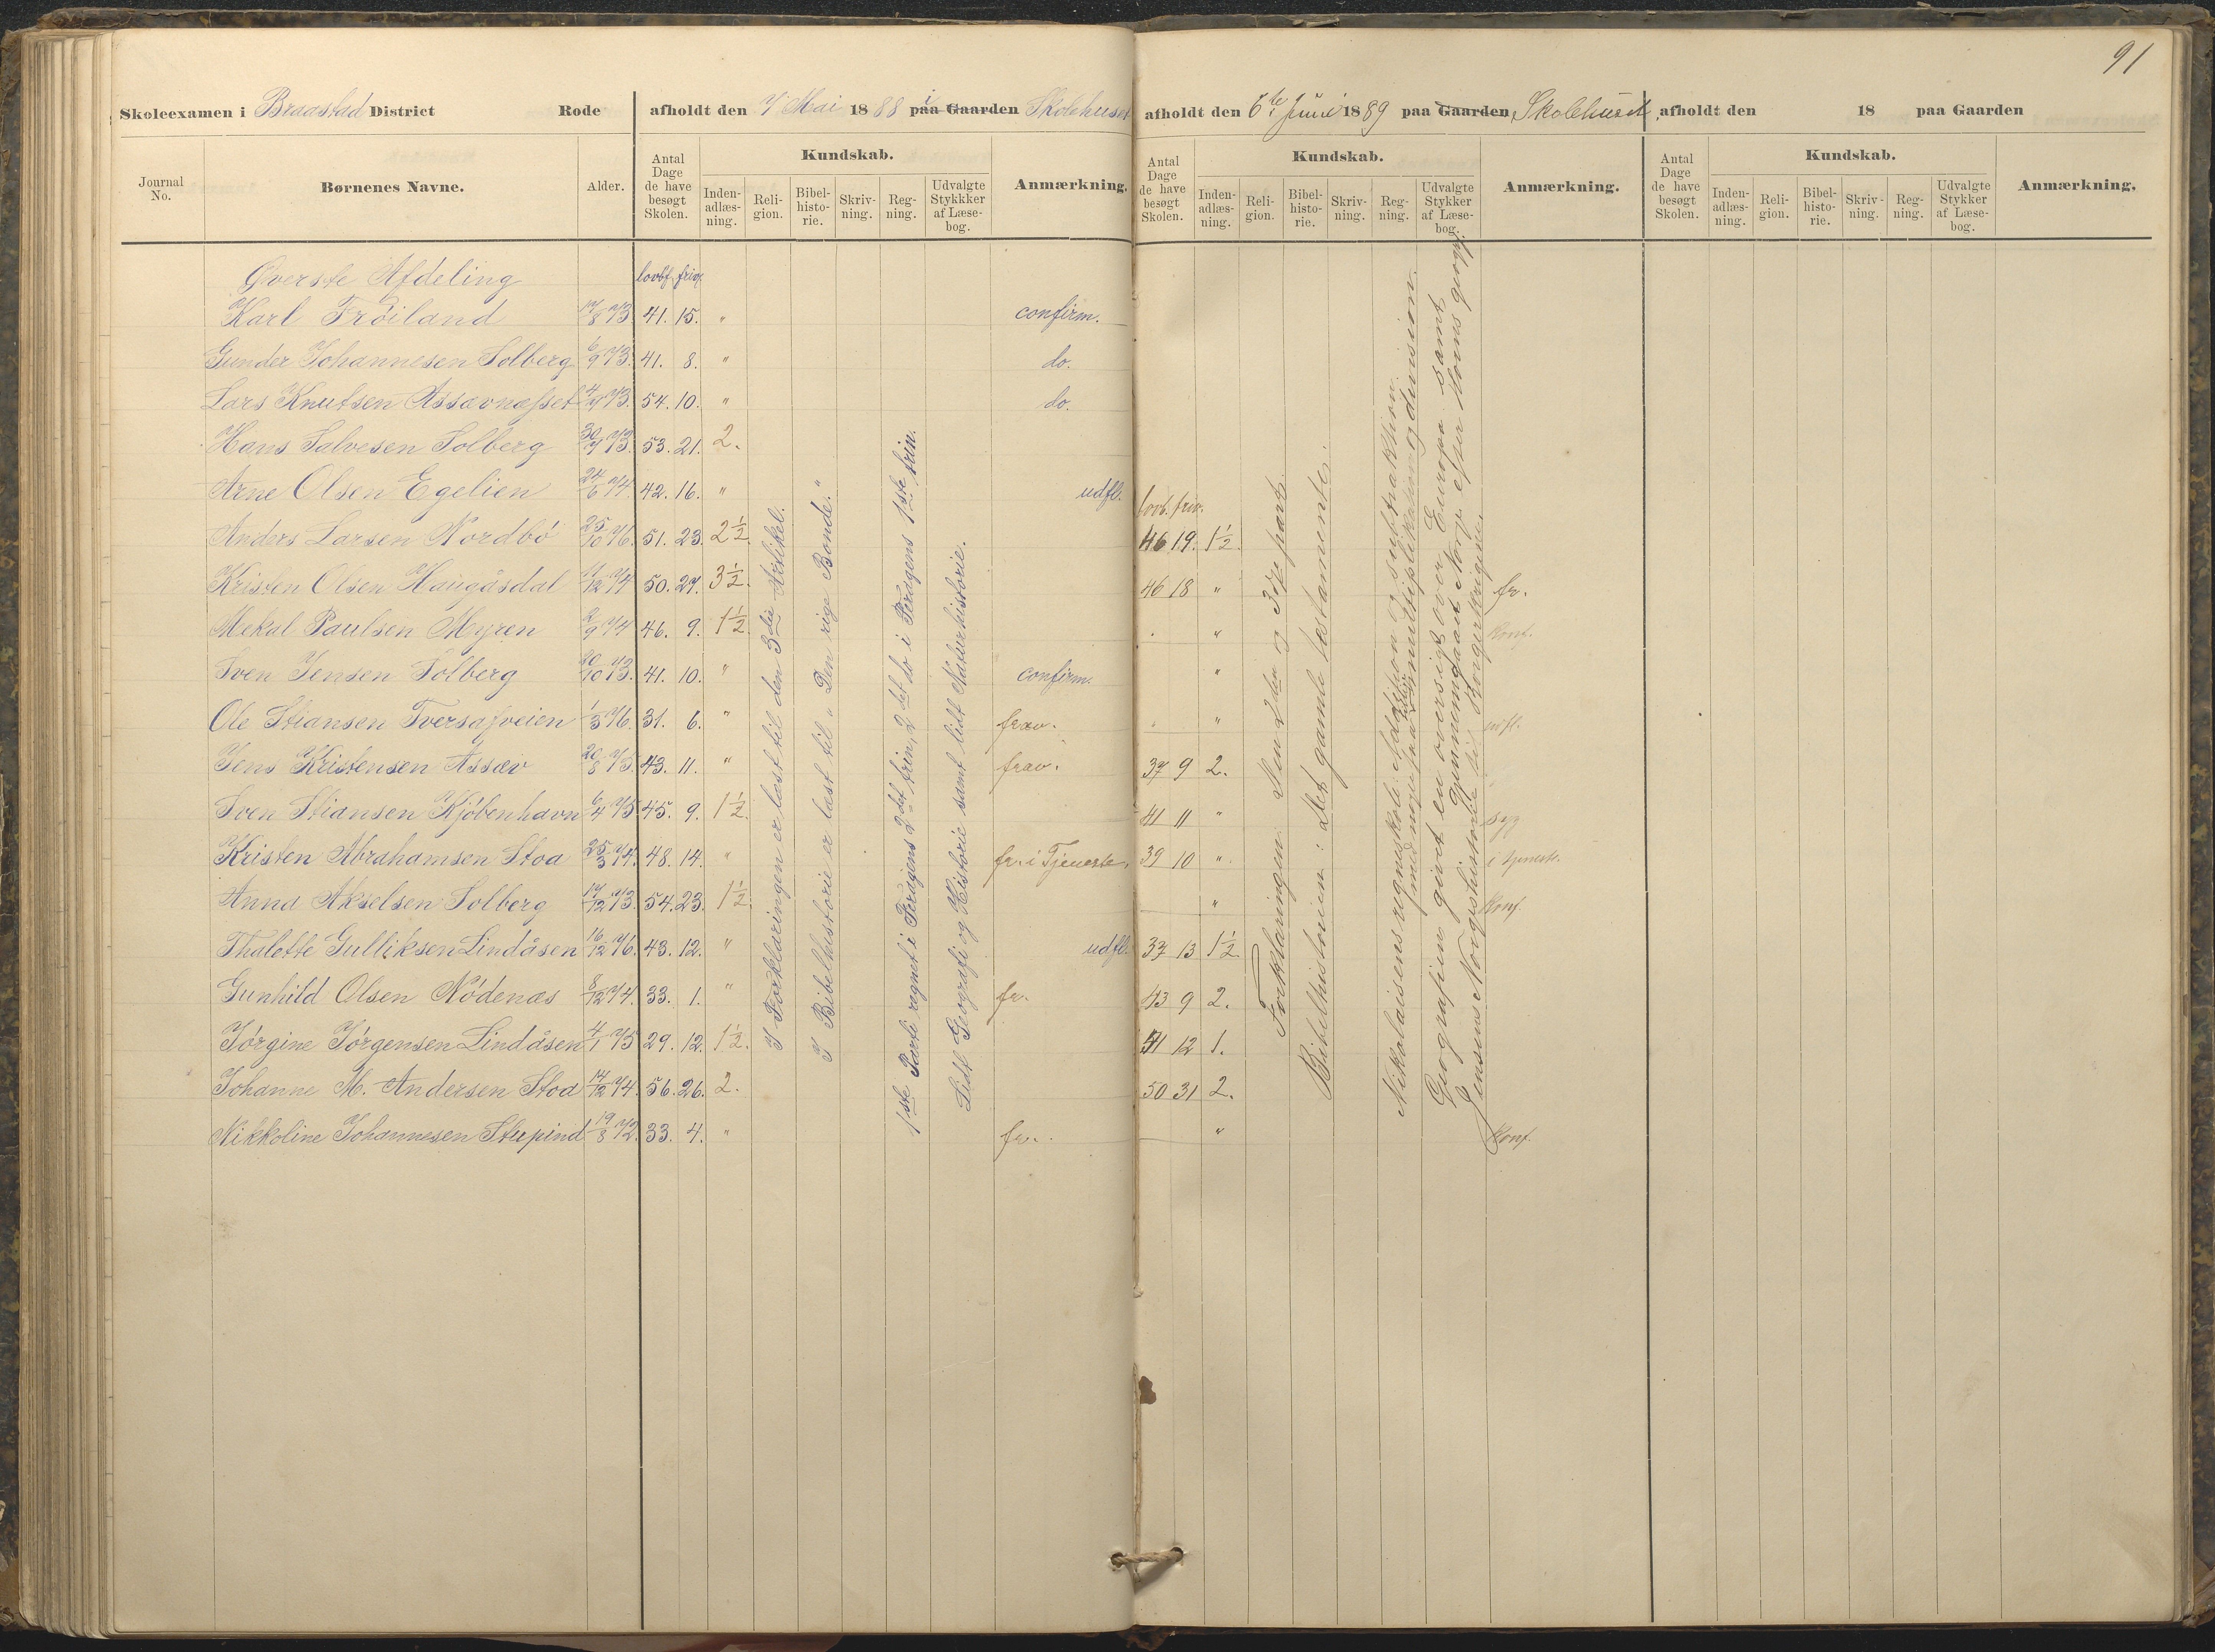 91
Skoleexamen i Braastad District Rode afholdt den 7 Mai 1888 i paa Gaarden Skolehuset afholdt den 6te Juni 1889 paa Gaarden Skolehuset afholdt den 18 paa Gaarden
Journal No. Børnenes Navne. Alder. Antal Dage de have besøgt Skolen. Kundskab. Inden-adlæs-ning. Reli-gion. Bibel-histo-rie. Skriv-ning. Reg-ning. Udvalgte Stykkker af Læse-bog. Anmærkning.
Antal Dage de have besøgt Skolen. Kundskab. Inden-adlæs-ning. Reli-gion. Bibel-histo-rie. Skriv-ning. Reg-ning. Udvalgte Stykker af Læse-bog. Anmærkning.
Antal Dage de have besøgt Skolen. Kundskab. Inden-adlæs-ning. Reli-gion. Bibel-histo-rie. Skriv-ning. Reg-ning. Udvalgte Stykker af Læse-bog. Anmærkning.
Øverste Afdeling lovbf. friv.
Karl Frøiland 17/8 73. 41. 15. " confirm.
Gunder Johannesen Solberg 6/9 73. 41. 8. " do.
Lars Knutsen Assævnæsset 73. 54. 10. " do.
Hans Salvesen Solberg 30/7 73. 53. 21. 2.
Arne Olsen Egelien 24/6 74. 42. 16. " udfl.
lovb. friv.
Anders Larsen Nordbö 25/10 76. 51. 23. 2 1/2. 46 19. 1 1/2.
Kristen Olsen Haugåsdal 11/12 74 50. 27. 3 1/2. 46 18 " fr.
Mekal Paulsen Myren 2/9 74 46. 9. 1 1/2. " konf.
Sven Jensen Solberg 20/10 73. 41. 10. " confirm. "
Ole Stiansen Tversafveien 1/3 76. 31. 6. " frav. "
Jens Kristensen Assæv 20/8 75. 43. 11. " frav. 37 9 2.
Sven Stiansen Kjöbenhavn 6/4 75. 45. 9. 1 1/2. 41 11 " syg
Kristen Abrahamsen Stoa 25/3 74. 48. 14. " fr. i Tjeneste. 39 10 " i tjeneste.
Anna Akselsen Solberg 17/12 73. 54. 23. 1 1/2. " konf.
Thalette Gulliksen Lindåsen 16/12 76. 43. 12. " udfl. 37 13 1 1/2.
Gunhild Olsen Nödenæs 8/12 74. 33. 1. " fr. 43 9 2.
Jörgine Jörgensen Lindåsen 4/1 75 29. 12. 1 1/2. 41 12 1.
Johanne M. Andersen Stoa 14/12 74. 56. 26. 2. 50 31 2.
Nikkoline Johannesen Stupind 19/8 72. 33. 4. " fr. " konf.
I Forklaringen er læst til den 3die Artikel.
I Bibelhistorie er læst til "Den rige Bonde."
1ste Parti regnet i Feragens 2det trin, 2det do i Feragens 1ste trin.
Lidt Geografi og Historie samt lidt Naturhistorie.
Forklaringen: 2den og 3dje part.
Bibelhistorien: Det gamle testamente.
Nikolaisens regneskole: Addition og subtraktion
multiplikation og division.
Geografien: givet en oversigt over Europa samt
gjennemgaaet Norge efter Horns geogr.
Jensens Norgeshistorie til Borgerkrigene.